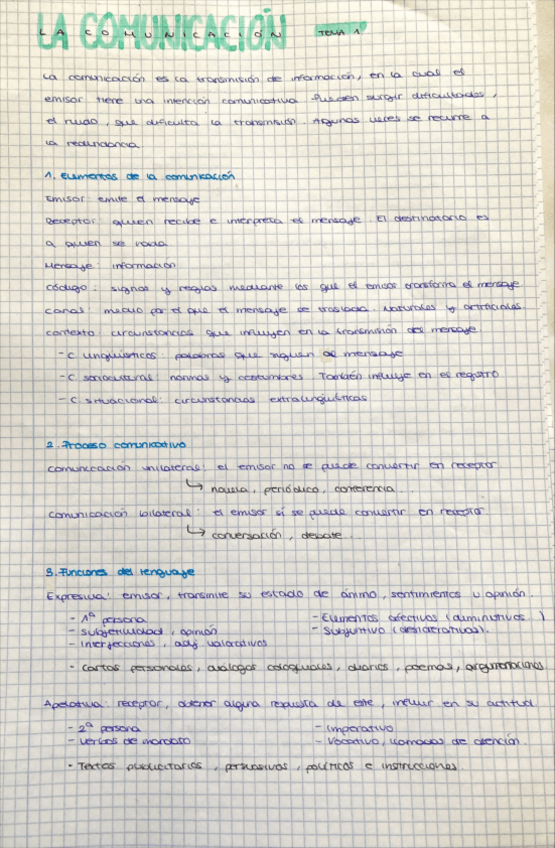 LA COMUNICACIÓN TEMA 1
La comunicación es la transmisión de información, en la cual el
emisor tiene una intención comunicativa. Pueden surgir dificultades,
el ruido, que dificulta la transmisión. Algunas veces se recurre a
la redundancia
1. Elementos de la comunicación
Emisor: emite el mensaje
Receptor: quien recibe e interpreta el mensaje. El destinatario es
a quien se
Mensaje: información
Código: signos y reglas mediante los que el emisor transforma el mensaje
Canal: medio por el que el mensaje se traslada. Naturales y artificiales
Contexto: circunstancias que influyen en la transmisión del mensaje
- C lingüísticos: palabras que siguen al mensaje
- C socioculturas: normas y costumbres. También influye en el registro
- C situacional: circunstancias extralingüísticas
2. Proceso comunicativo
Comunicación unilateral: el emisor no se puede convertir en receptor
↳ novela, periódico, conferencia...
Comunicación bilateral: el emisor sí se puede convertir en receptor
↳ conversación, debate...
3. Funciones del lenguaje
Expresiva: emisor, transmite su estado de ánimo, sentimientos u opinión.
- 1ª persona - Elementos afectivos (diminutivos...)
- subjetividad, opinión - Subjuntivo (desiderativas).
- interjecciones, adj valorativos
• Cartas personales, diálogos coloquiales, diarios, poemas, argumentaciones
Apelativa: receptor, obtener alguna respuesta de este, influir en su actitud
- 2ª persona - Imperativo
- verbos de mandato - Vocativo, llamadas de atención
• Textos publicitarios, persuasivos, políticos e instrucciones.